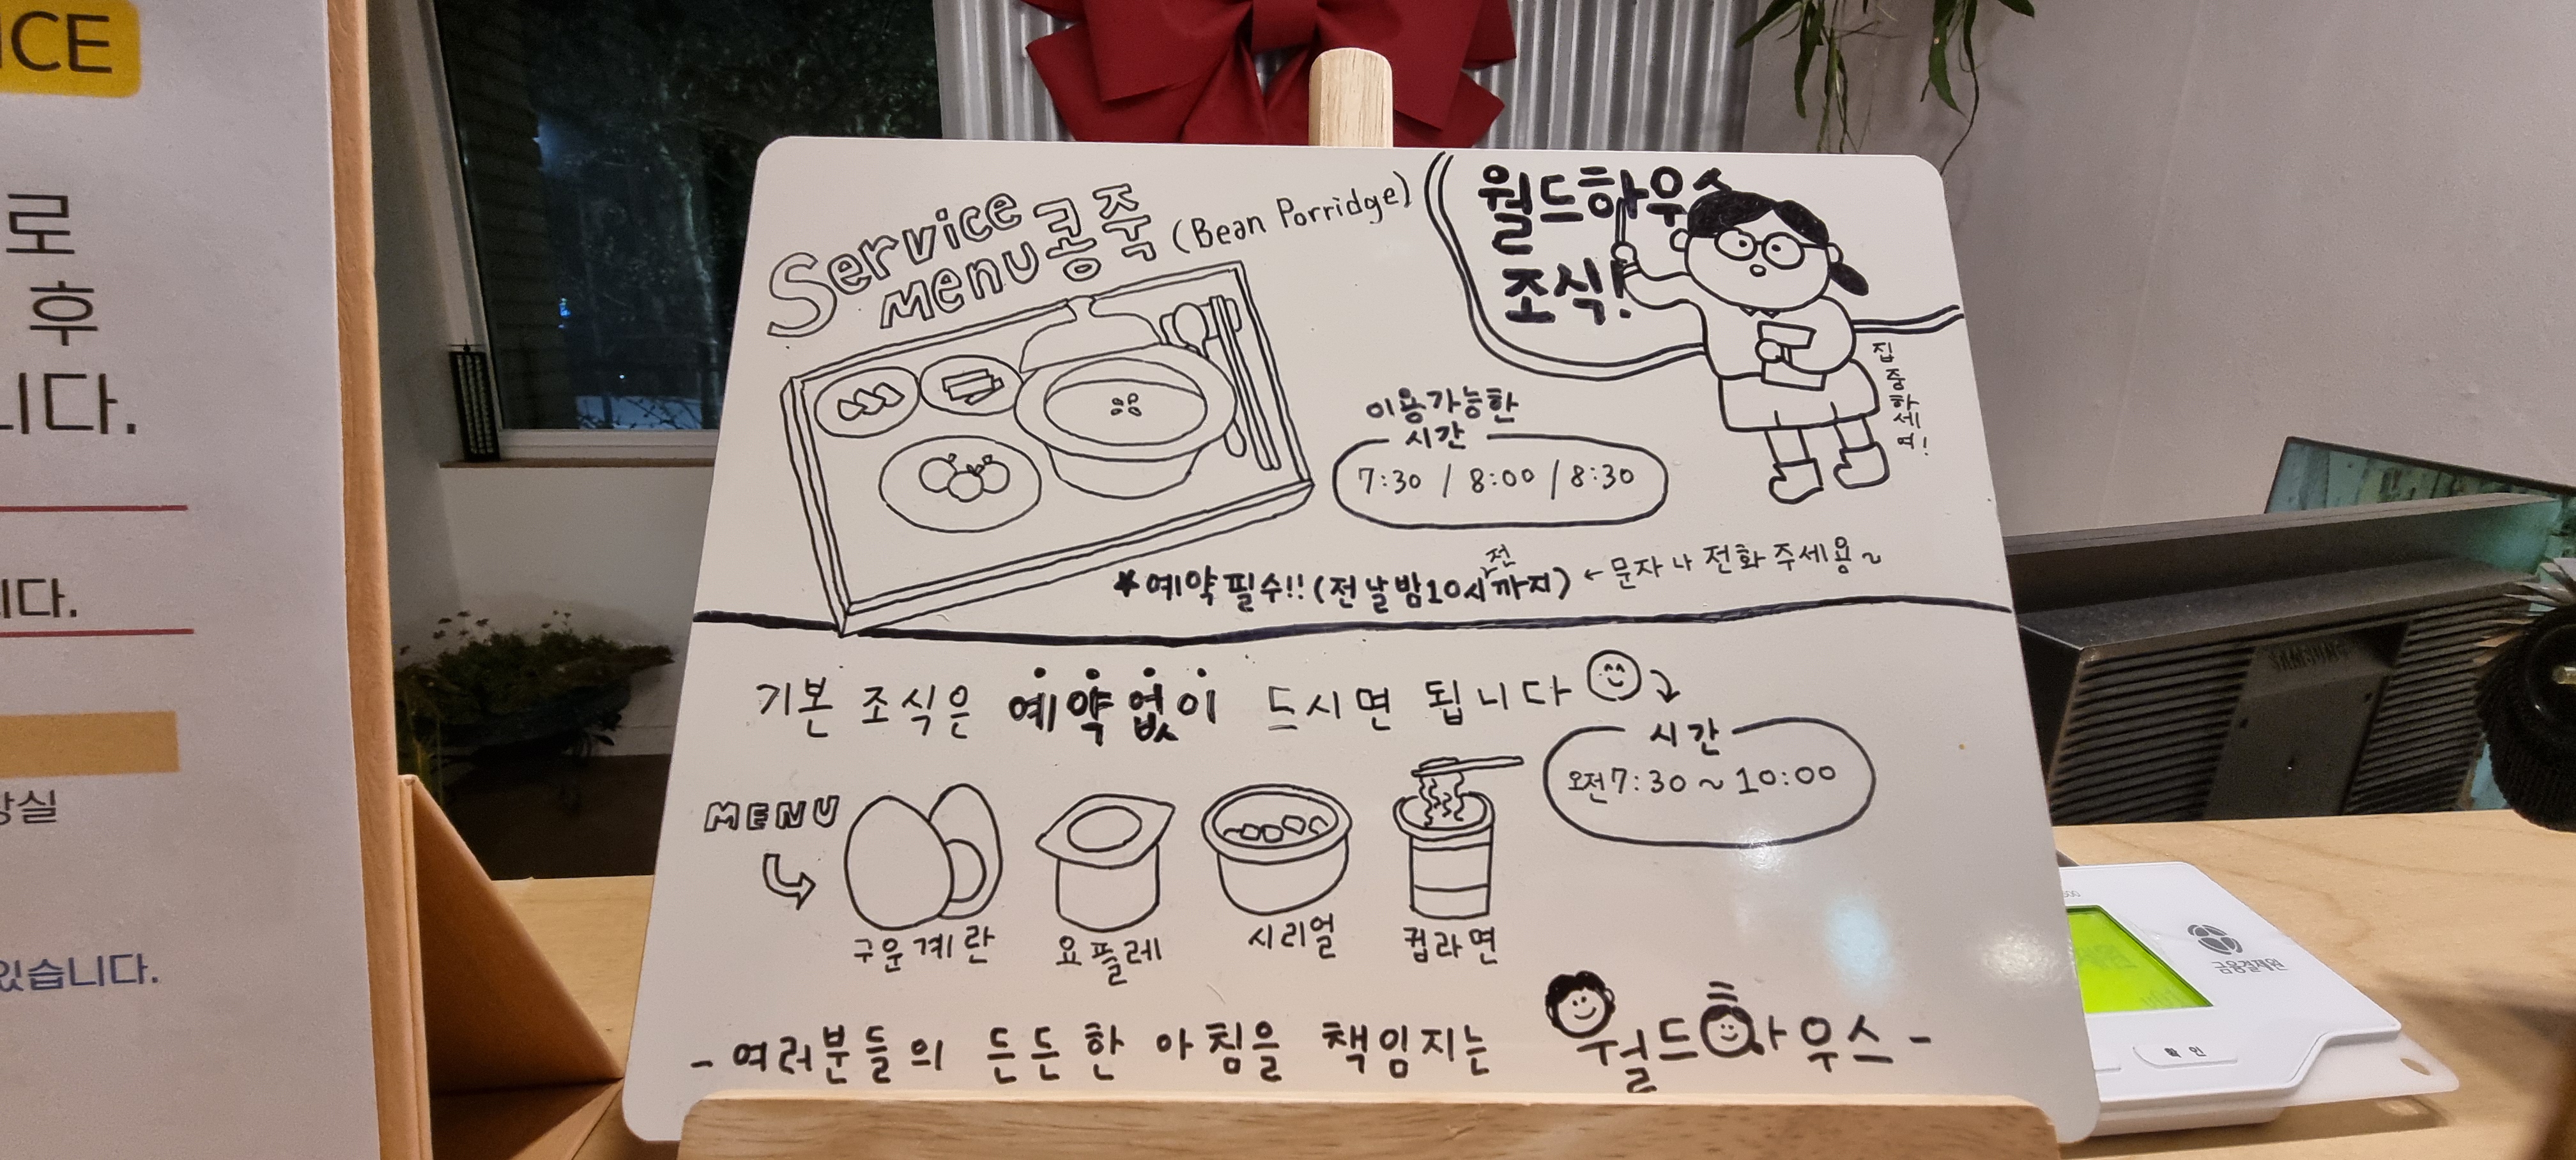 ICE
로
후
니다.
니다.
있습니다.
Service
menu 콩죽 (Bean Porridge)
월드하우스
조식!
집중하세여!
이용가능한
시간
7:30 / 8:00 / 8:30
*예약필수!! (전날밤10시전까지) ← 문자나 전화 주세용~
기본 조식은 예약없이 드시면 됩니다
시간
오전7:30 ~ 10:00
MENU
구운계란
요플레
시리얼
컵라면
- 여러분들의 든든한 아침을 책임지는 월드하우스 -
SAMSUNG
금융결제원
확인